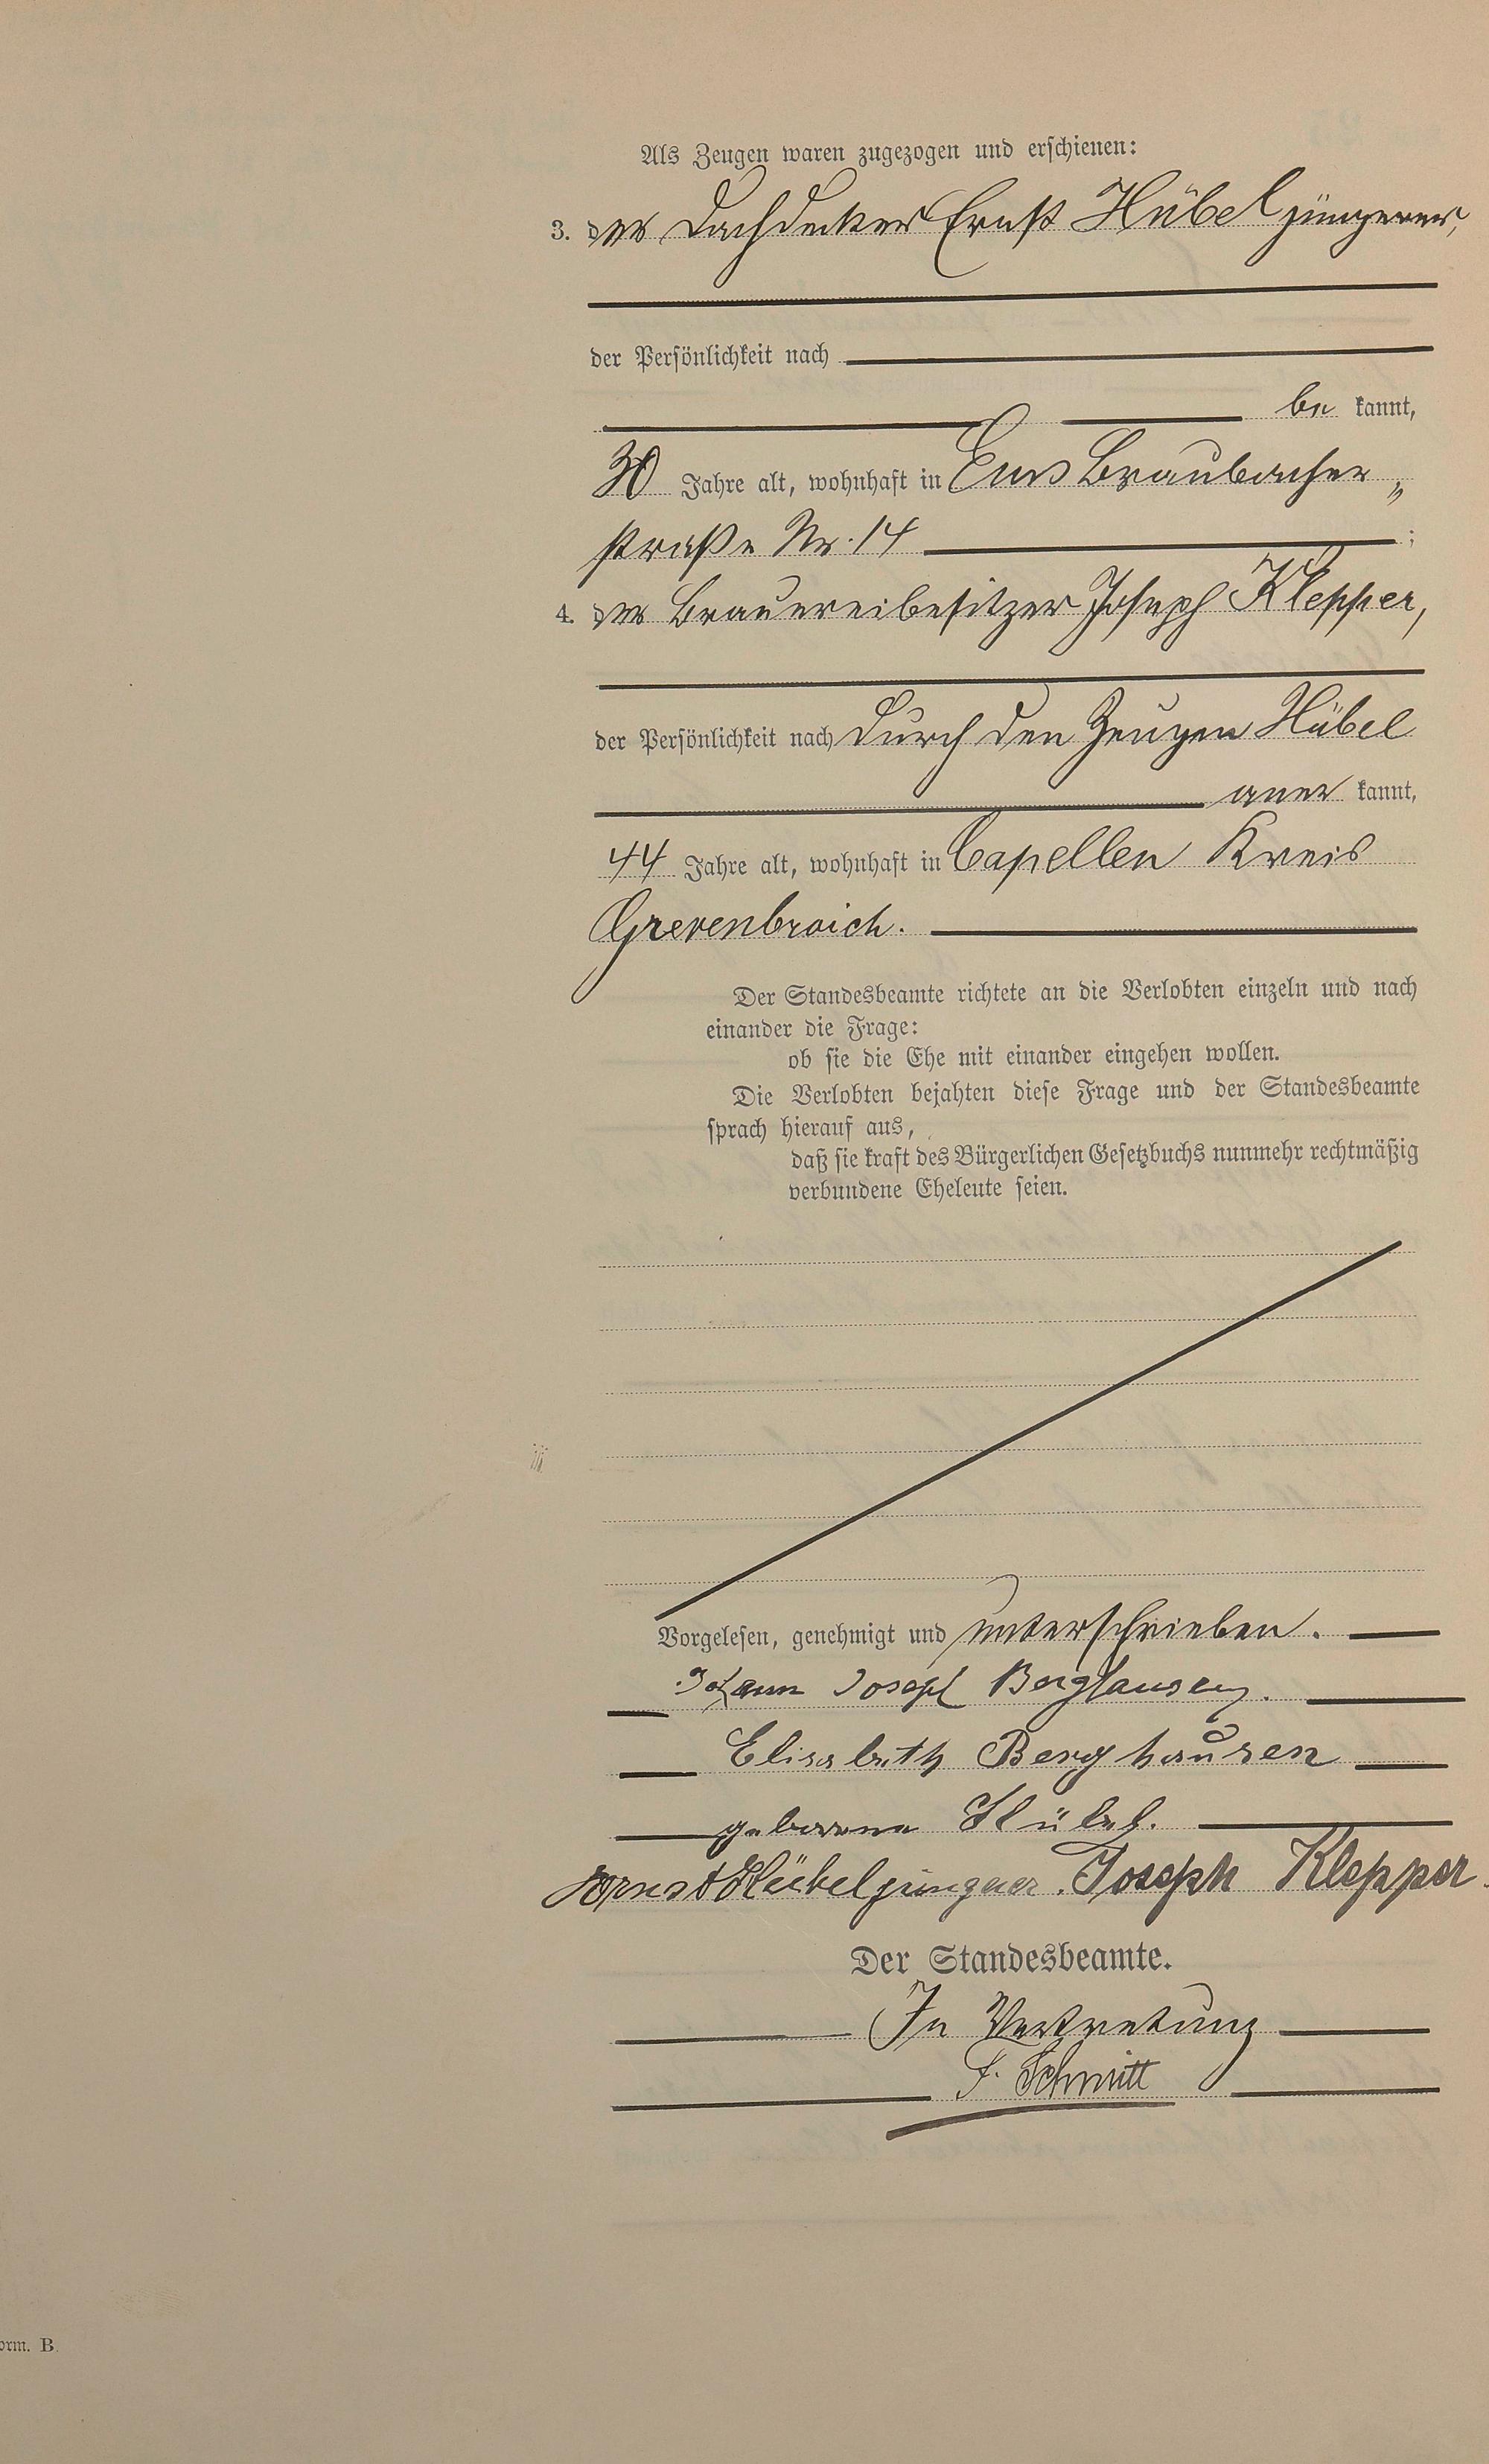 Als Zeugen waren zugezogen und erschienen:
3. der Dachdecker Ernst Hübel jüngerer,
der Persönlichkeit nach
be kannt,
30 Jahre alt, wohnhaft in Ems Braubacher„
straße Nr. 14 ;
4. der Brauereibesitzer Joseph Klepper,
der Persönlichkeit nach durch den Zeugen Hübel
aner kannt,
44 Jahre alt, wohnhaft in Capellen Kreis
Grevenbroich.
Der Standesbeamte richtete an die Verlobten einzeln und nach
einander die Frage:
ob sie die Ehe mit einander eingehen wollen.
Die Verlobten bejahten diese Frage und der Standesbeamte
sprach hierauf aus,
daß sie kraft des Bürgerlichen Gesetzbuchs nunmehr rechtmäßig
verbundene Eheleute seien.
Vorgelesen, genehmigt und unterschrieben.
Johann Joseph Berghausen.
Elisabeth Berghausen
geborene Hübel.
Ernst Hübel jüngerer. Joseph Klepper.
Der Standesbeamte.
In Vertretung
F. Schmitt
orm. B.